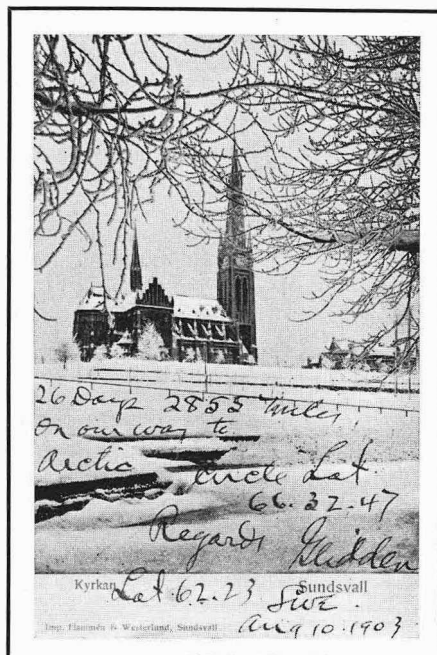 26 Days 2855 Miles
on our way to
Arctic Circle Lat.
66.32.47
Regards Glidden
Kyrkan Sundsvall
Lat. 62.23 Swe.
Aug 10. 1903
Imp. Flammén & Westerlund, Sundsvall